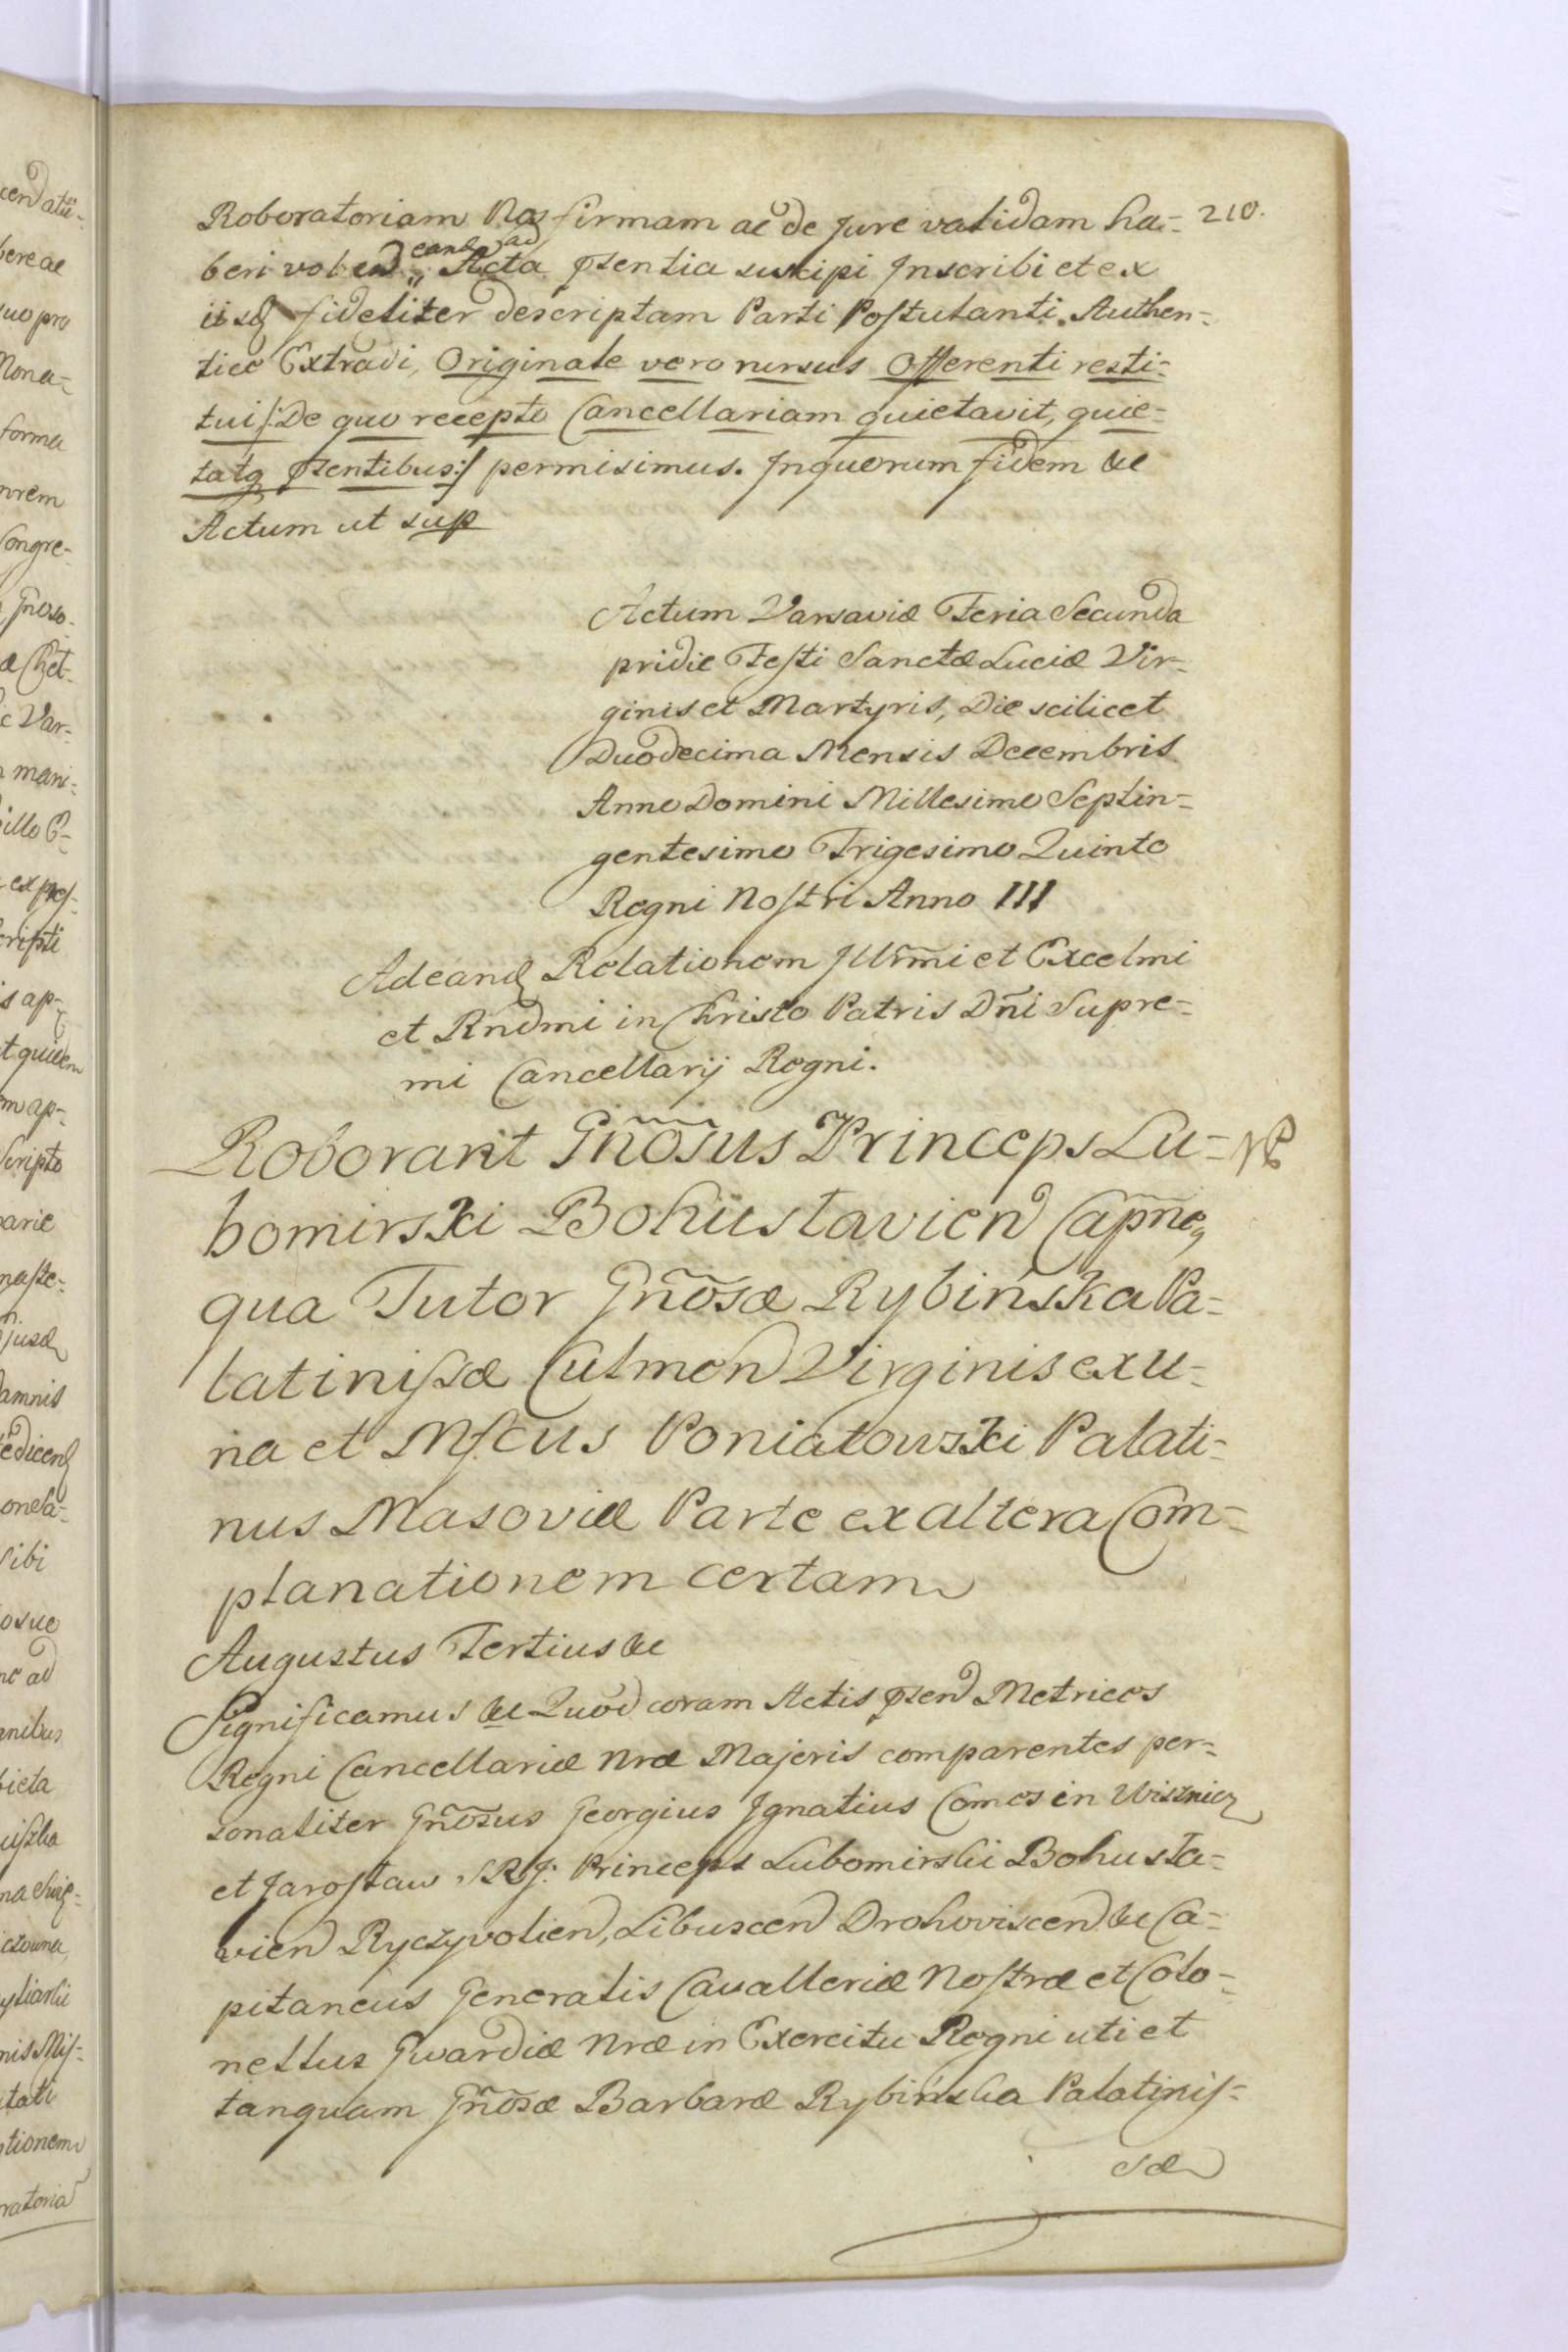 210.
Roboratoriam Nos firmam ac de Jure validam ha=
beri volend eand ad Acta pntentia suscipi Inscribi et ex
iisq fideliter descriptam Parti Postulanti Authen=
tice Extradi, Originale vero rursus Offerenti resti=
tui /: De quo recepto Cancellariam quietavit, quie=
tatq pntentibus :/ permisimus. In quorum fidem &c
Actum ut sup
Actum Varsaviæ Feria Secunda
pridie Festi Sanctæ Luciæ Vir=
ginis et Martyris, Die scilicet
Duodecima Mensis Decembris
Anno Domini Millesimo Septin=
gentesimo Trigesimo Quinto
Regni Nostri Anno III
Ad eand Relationem Illrm̃i et Excelmi
et Rndmi in Christo Patris Dñi Supre=
mi Cancellarij Regni.
Roborant Gñosus Princeps Lu=
bomirski Bohuslavien Capne,
qua Tutor Gñosæ Rybińska Pa=
latinissæ Culmen Virginis ex u=
na et Mfcus Poniatowski Palati=
nus Masoviæ Parte ex altera Com=
planationem certam
Augustus Tertius &c
Significamus &c Quod coram Actis pnten Metrices
Regni Cancellariæ Nræ Majoris comparentes per=
sonaliter Gñosus Georgius Ignatius Comes in Wisznicz
et Jarosław S.R.J. Princeps Lubomirski Bohusla=
vien Ryczyvolien, Libuscen Drohoviscen &c Ca=
pitaneus Generalis Cavalleriæ Nostræ et Colo=
nellus Gwardiæ Nræ in Exercitu Regni uti et
tanquam Gñosæ Barbaræ Rybińska Palatinis=
sæ